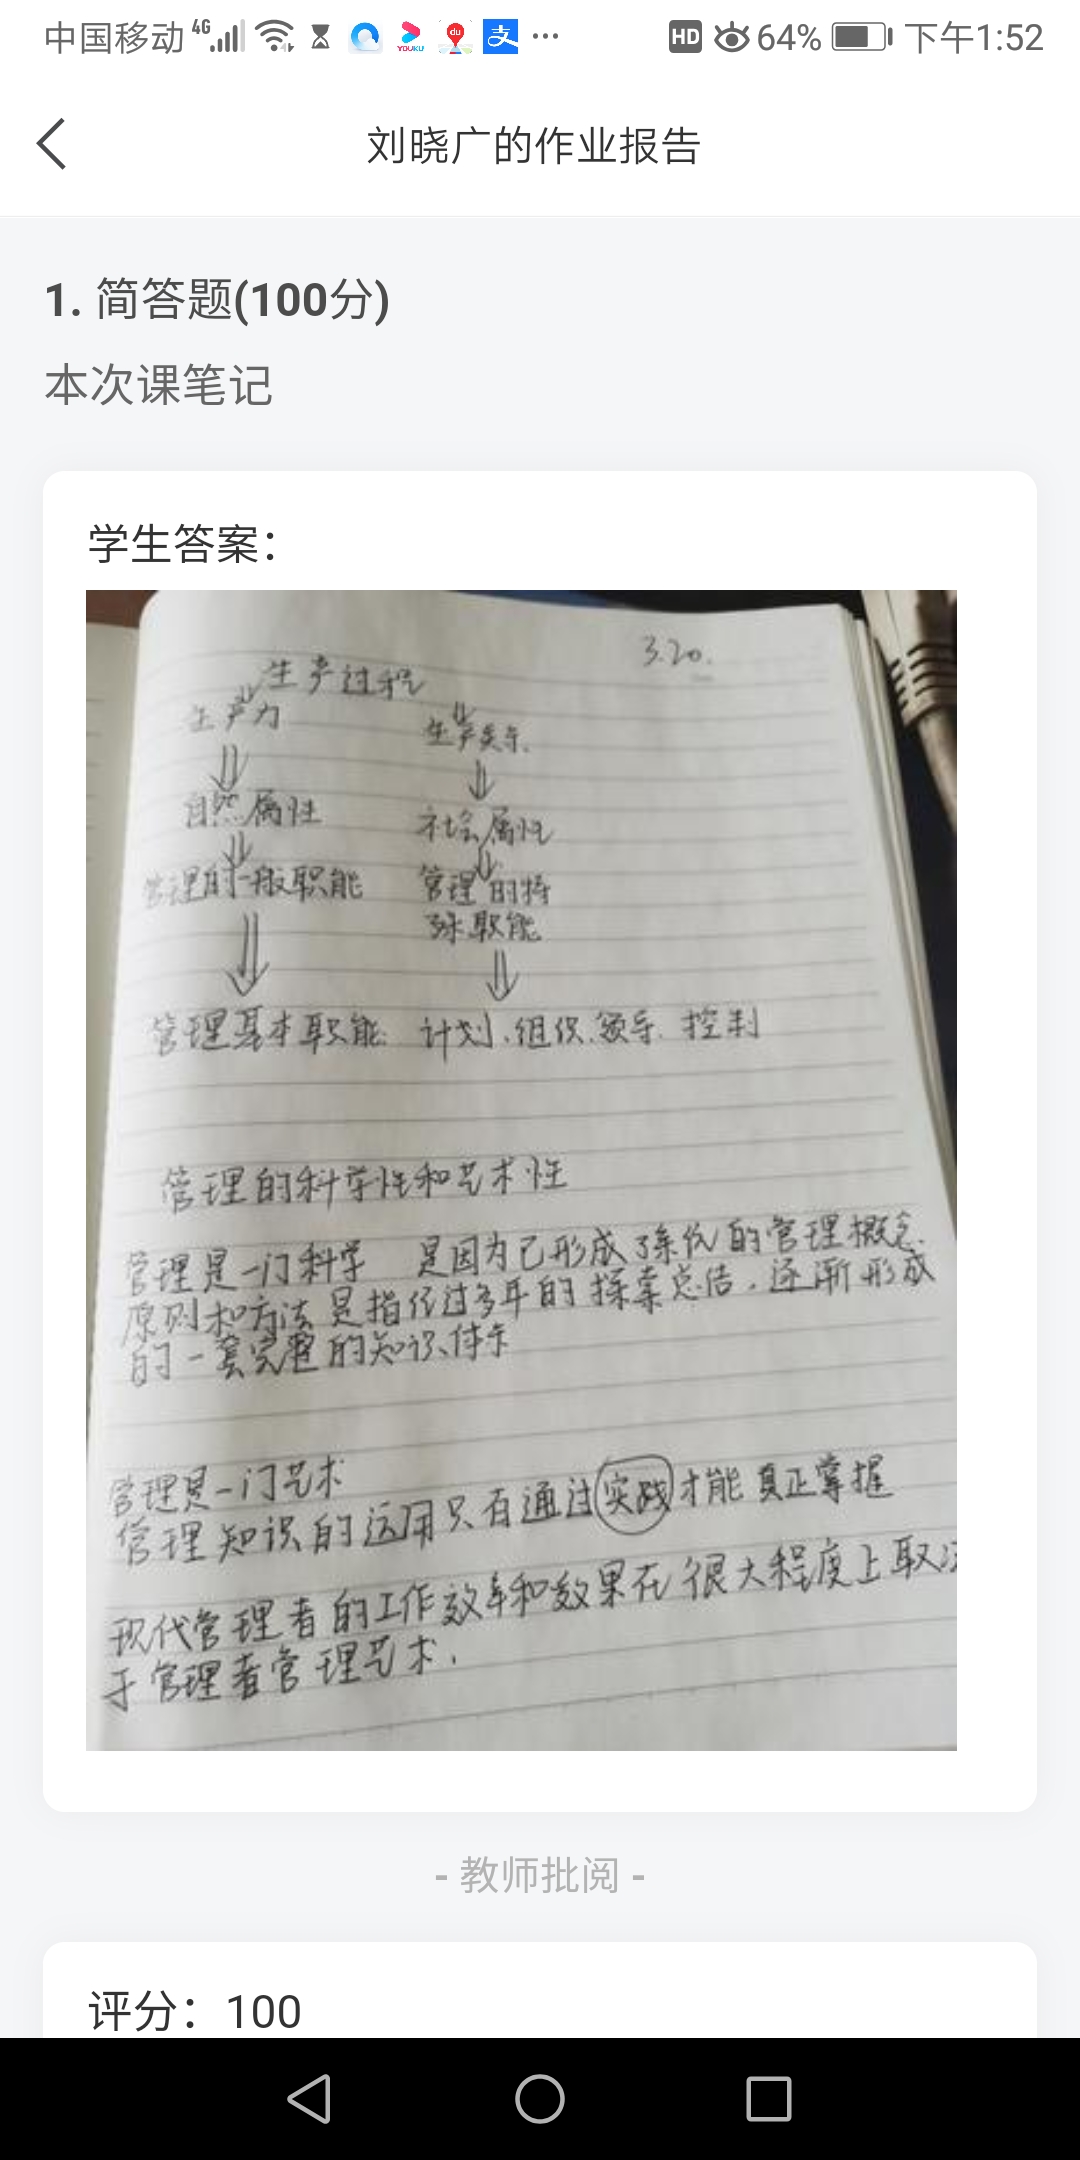 中国移动 4G HD 64% 下午1:52
刘晓广的作业报告
1. 简答题(100分)
本次课笔记
学生答案：
3.20.
生产过程
生产力 生产关系.
自然属性 社会属性
管理的一般职能 管理的特
殊职能
管理基本职能: 计划、组织、领导、控制
管理的科学性和艺术性
管理是一门科学 是因为已形成了系统的管理概念.
原则和方法 是指经过多年的探索总结，逐渐形成
的一套完整的知识体系
管理是一门艺术
管理知识的运用只有通过实践才能真正掌握
现代管理者的工作效率和效果在很大程度上取决
于管理者管理艺术.
- 教师批阅 -
评分：100